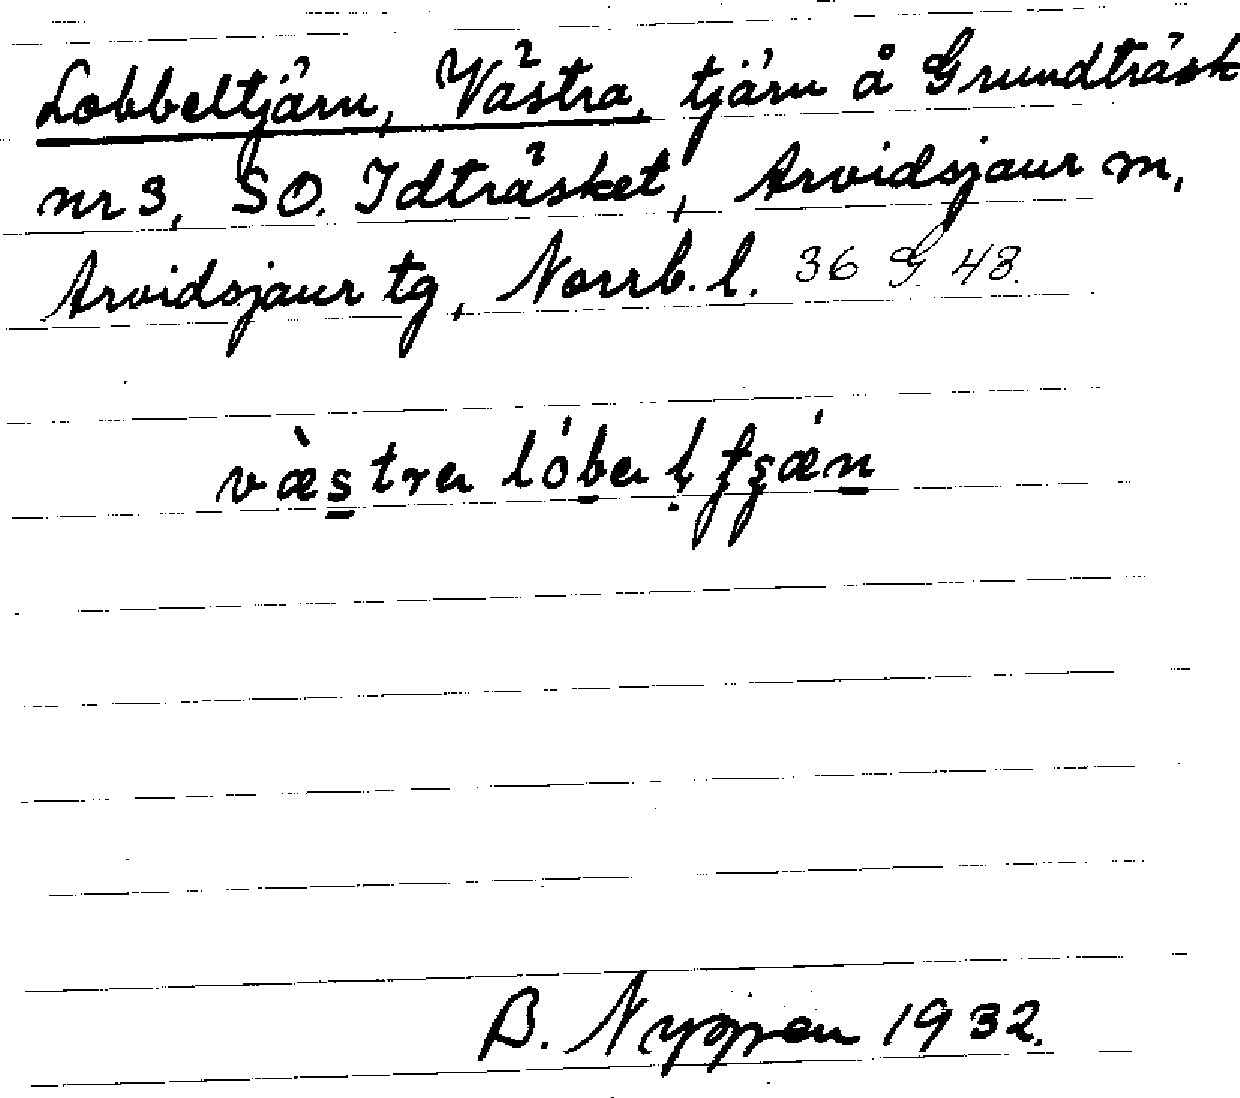 Lobbeltjärn, Västra, tjärn å Grundträsk
nr 3, SO. Idträsket, Arvidsjaur sn,
Arvidsjaur tg, Norrb. l. 36 G 48.
væ̀stra
B. 1932.